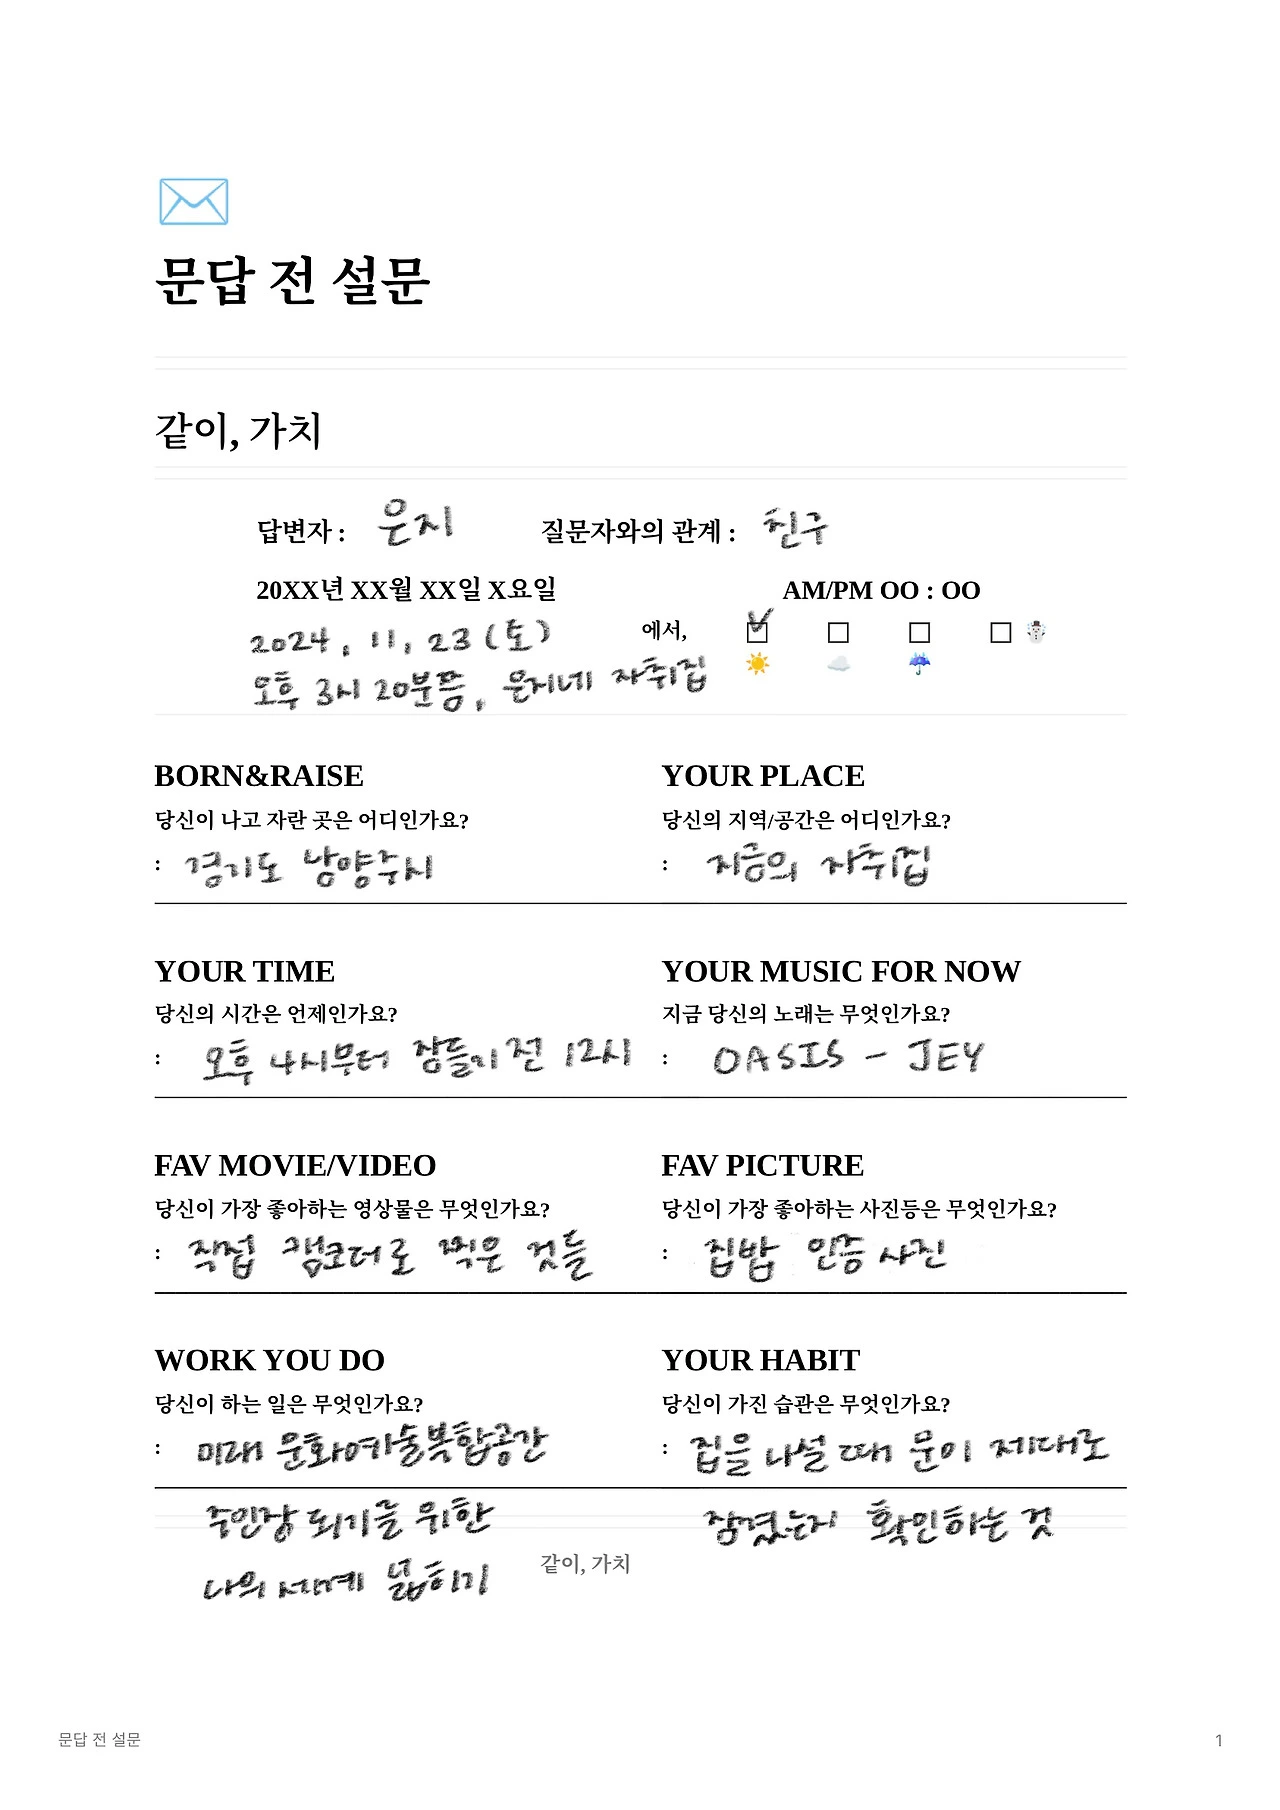 문답 전 설문
같이, 가치
답변자 : 은지 질문자와의 관계 : 친구
20XX년 XX월 XX일 X요일 AM/PM OO : OO
2024, 11, 23 (토) 에서,
오후 3시 20분쯤, 은지네 자취집
BORN&RAISE
당신이 나고 자란 곳은 어디인가요?
: 경기도 남양주시
YOUR PLACE
당신의 지역/공간은 어디인가요?
: 지금의 자취집
YOUR TIME
당신의 시간은 언제인가요?
: 오후 4시부터 잠들기 전 12시
YOUR MUSIC FOR NOW
지금 당신의 노래는 무엇인가요?
: OASIS - JEY
FAV MOVIE/VIDEO
당신이 가장 좋아하는 영상물은 무엇인가요?
: 직접 캠코더로 찍은 것들
FAV PICTURE
당신이 가장 좋아하는 사진등은 무엇인가요?
: 집밥 인증 사진
WORK YOU DO
당신이 하는 일은 무엇인가요?
: 미래 문화예술복합공간
주인장 되기를 위한
나의 세계 넓히기
YOUR HABIT
당신이 가진 습관은 무엇인가요?
: 집을 나설 때 문이 제대로
잠겼는지 확인하는 것
같이, 가치
문답 전 설문 1